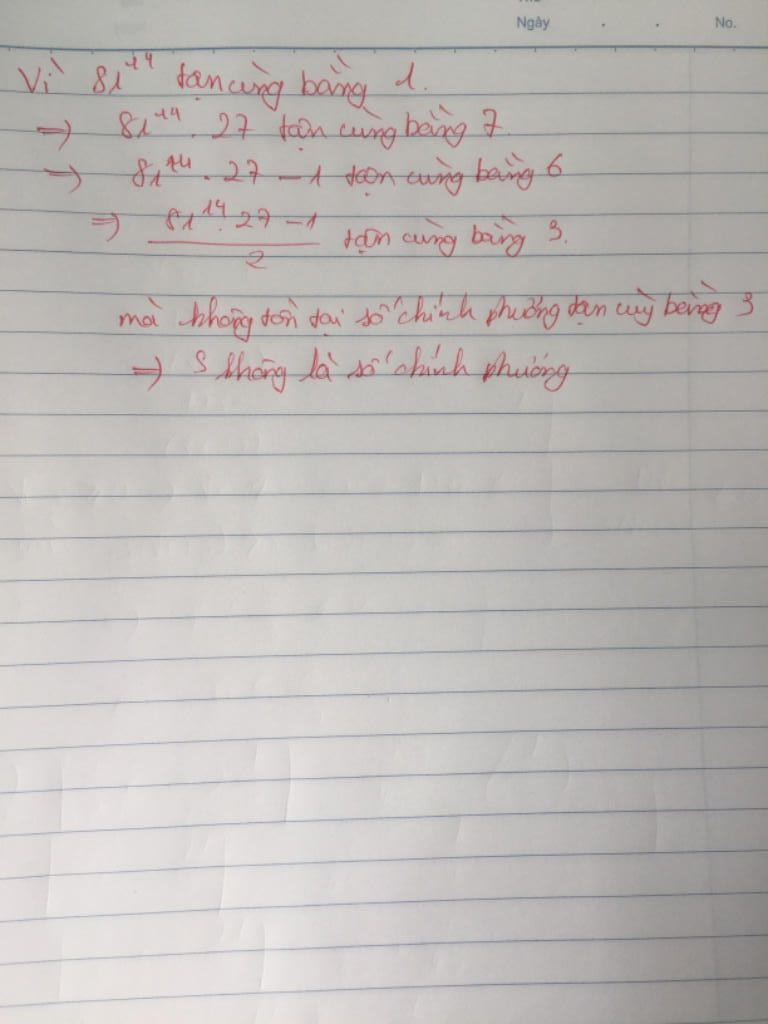 Ngày . . No.
Vì 81^14 tận cùng bằng 1.
⇒ 81^14 . 27 tận cùng bằng 7.
⇒ 81^14 . 27 - 1 tận cùng bằng 6
⇒ (81^14 . 27 - 1)/2 tận cùng bằng 3.
mà không tồn tại số chính phương tận cùng bằng 3
⇒ S không là số chính phương